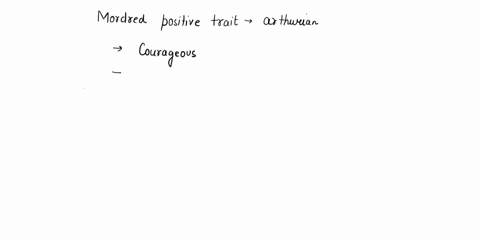 Mordred positive trait → arthurian
→ Courageous
–